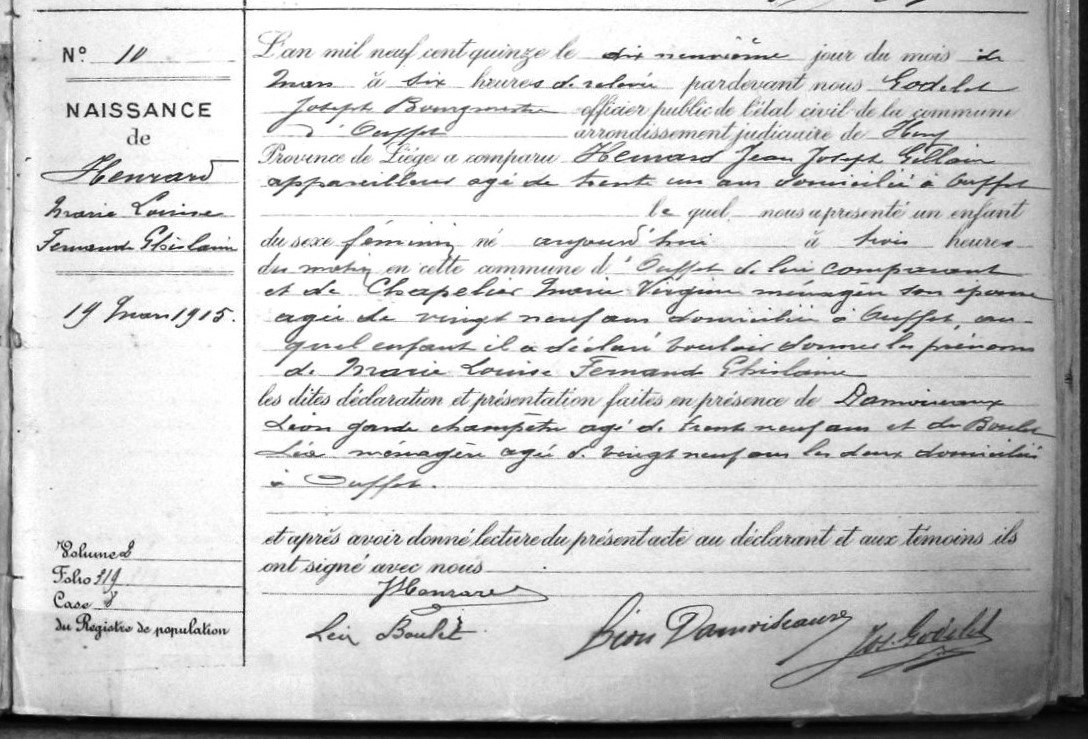 N° 10
NAISSANCE
de
Henrard
Marie Louise
Fernande Ghislaine
19 Mars 1915.
Volume 2
Folio 319
Case 8
du Registre de population
L'an mil neuf cent quinze le dix neuvième jour du mois de
Mars à six heures de relevée pardevant nous Godelet
Joseph Bourgmestre officier public de l'état civil de la commune
d'Ouffet arrondissement judiciaire de Huy
Province de Liége a comparu Henrard Jean Joseph Gillain
appareilleur agé de trente un ans domicilié à Ouffet
le quel nous a présenté un enfant
du sexe féminin né aujourd'hui à trois heures
du matin en cette commune d'Ouffet de lui comparant
et de Chapelier Marie Virginie ménagère son épouse
agée de vingt neuf ans domiciliée à Ouffet, au-
quel enfant il a déclaré vouloir donner les prénoms
de Marie Louise Fernande Ghislaine
les dites déclaration et présentation faites en présence de Damoiseaux
Léon garde champêtre agé de trente neuf ans et de Boulet
Léa ménagère agée de vingt neuf ans les deux domiciliés
à Ouffet.
et après avoir donné lecture du présent acte au déclarant et aux témoins ils
ont signé avec nous
JHenrard
Léa Boulet
Léon Damoiseaux
Jos. Godelet